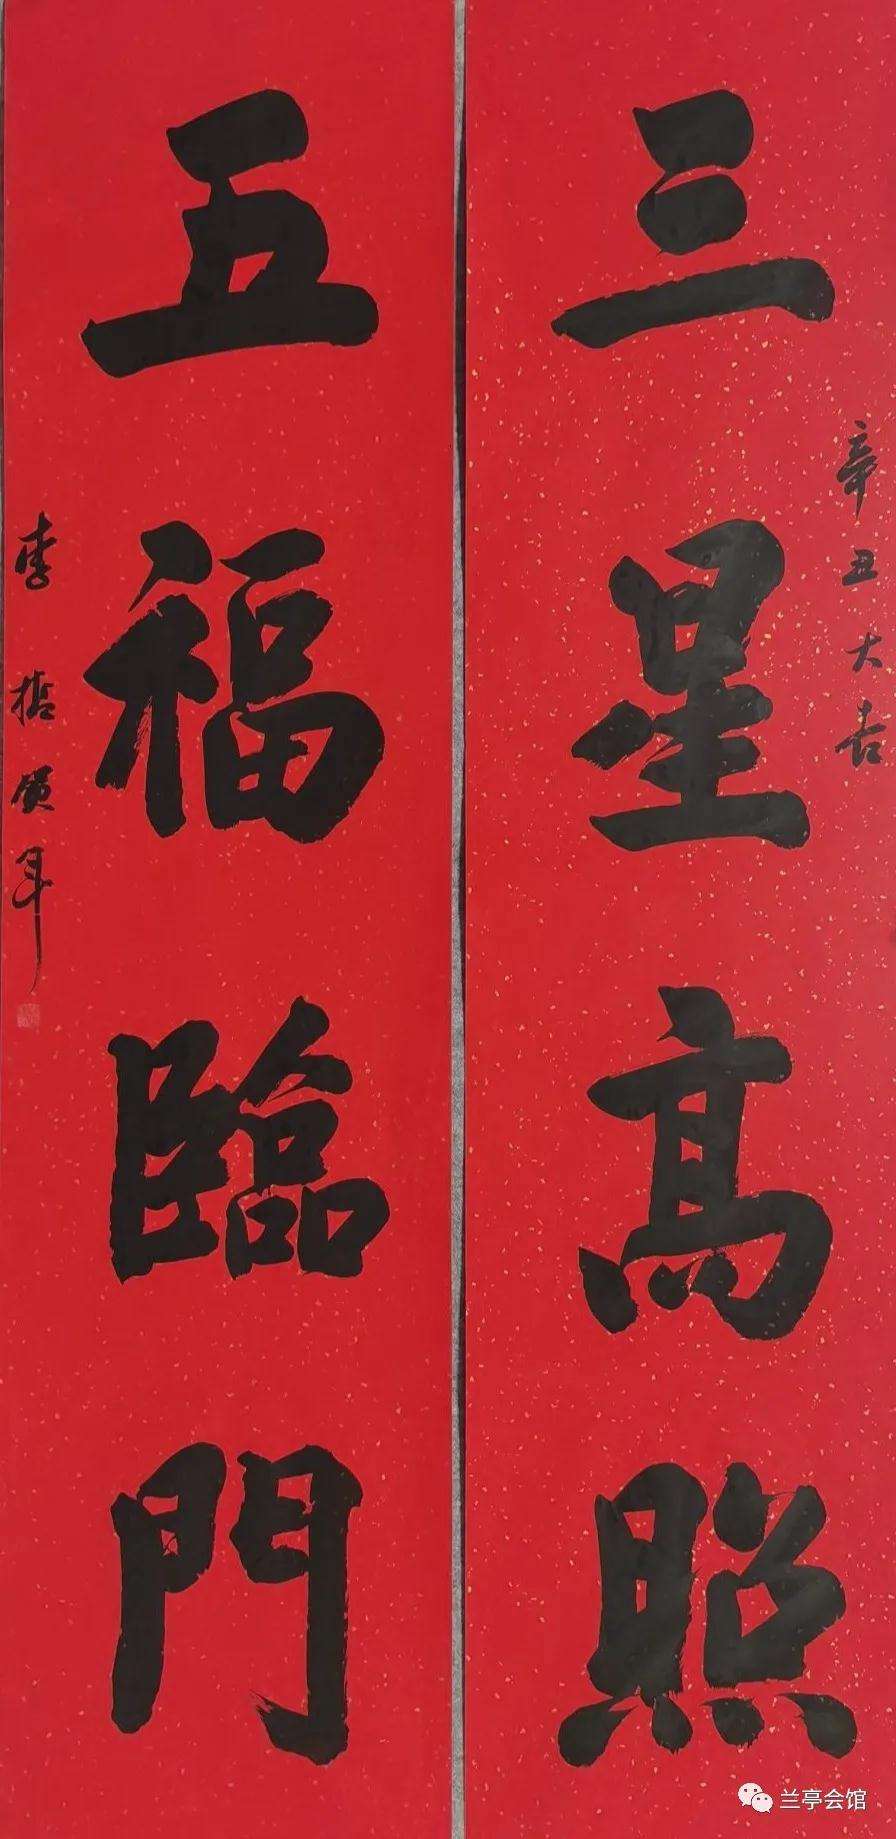 三星高照
辛丑大吉
五福臨門
兰亭会馆